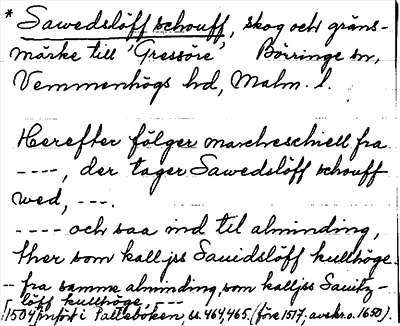 * Sawedslöff schouff, skog och gräns-
märke till 'Gressöre' Börringe sn,
Vemmenhögs hd, Malm. l.
Herefter fölger marcheschiell fra
----, der tager Sawedslöff schouff
wed, ---.
---- och saa ind til alminding,
ther som kalljss Sauidslöff kullhöge.
-- fra samme alminding, som kalljss Sauitz-
löff kullhöge, ---
[1504] infört i Palteboken, ss. 464, 465. (före 1517, avskr. o. 1650).